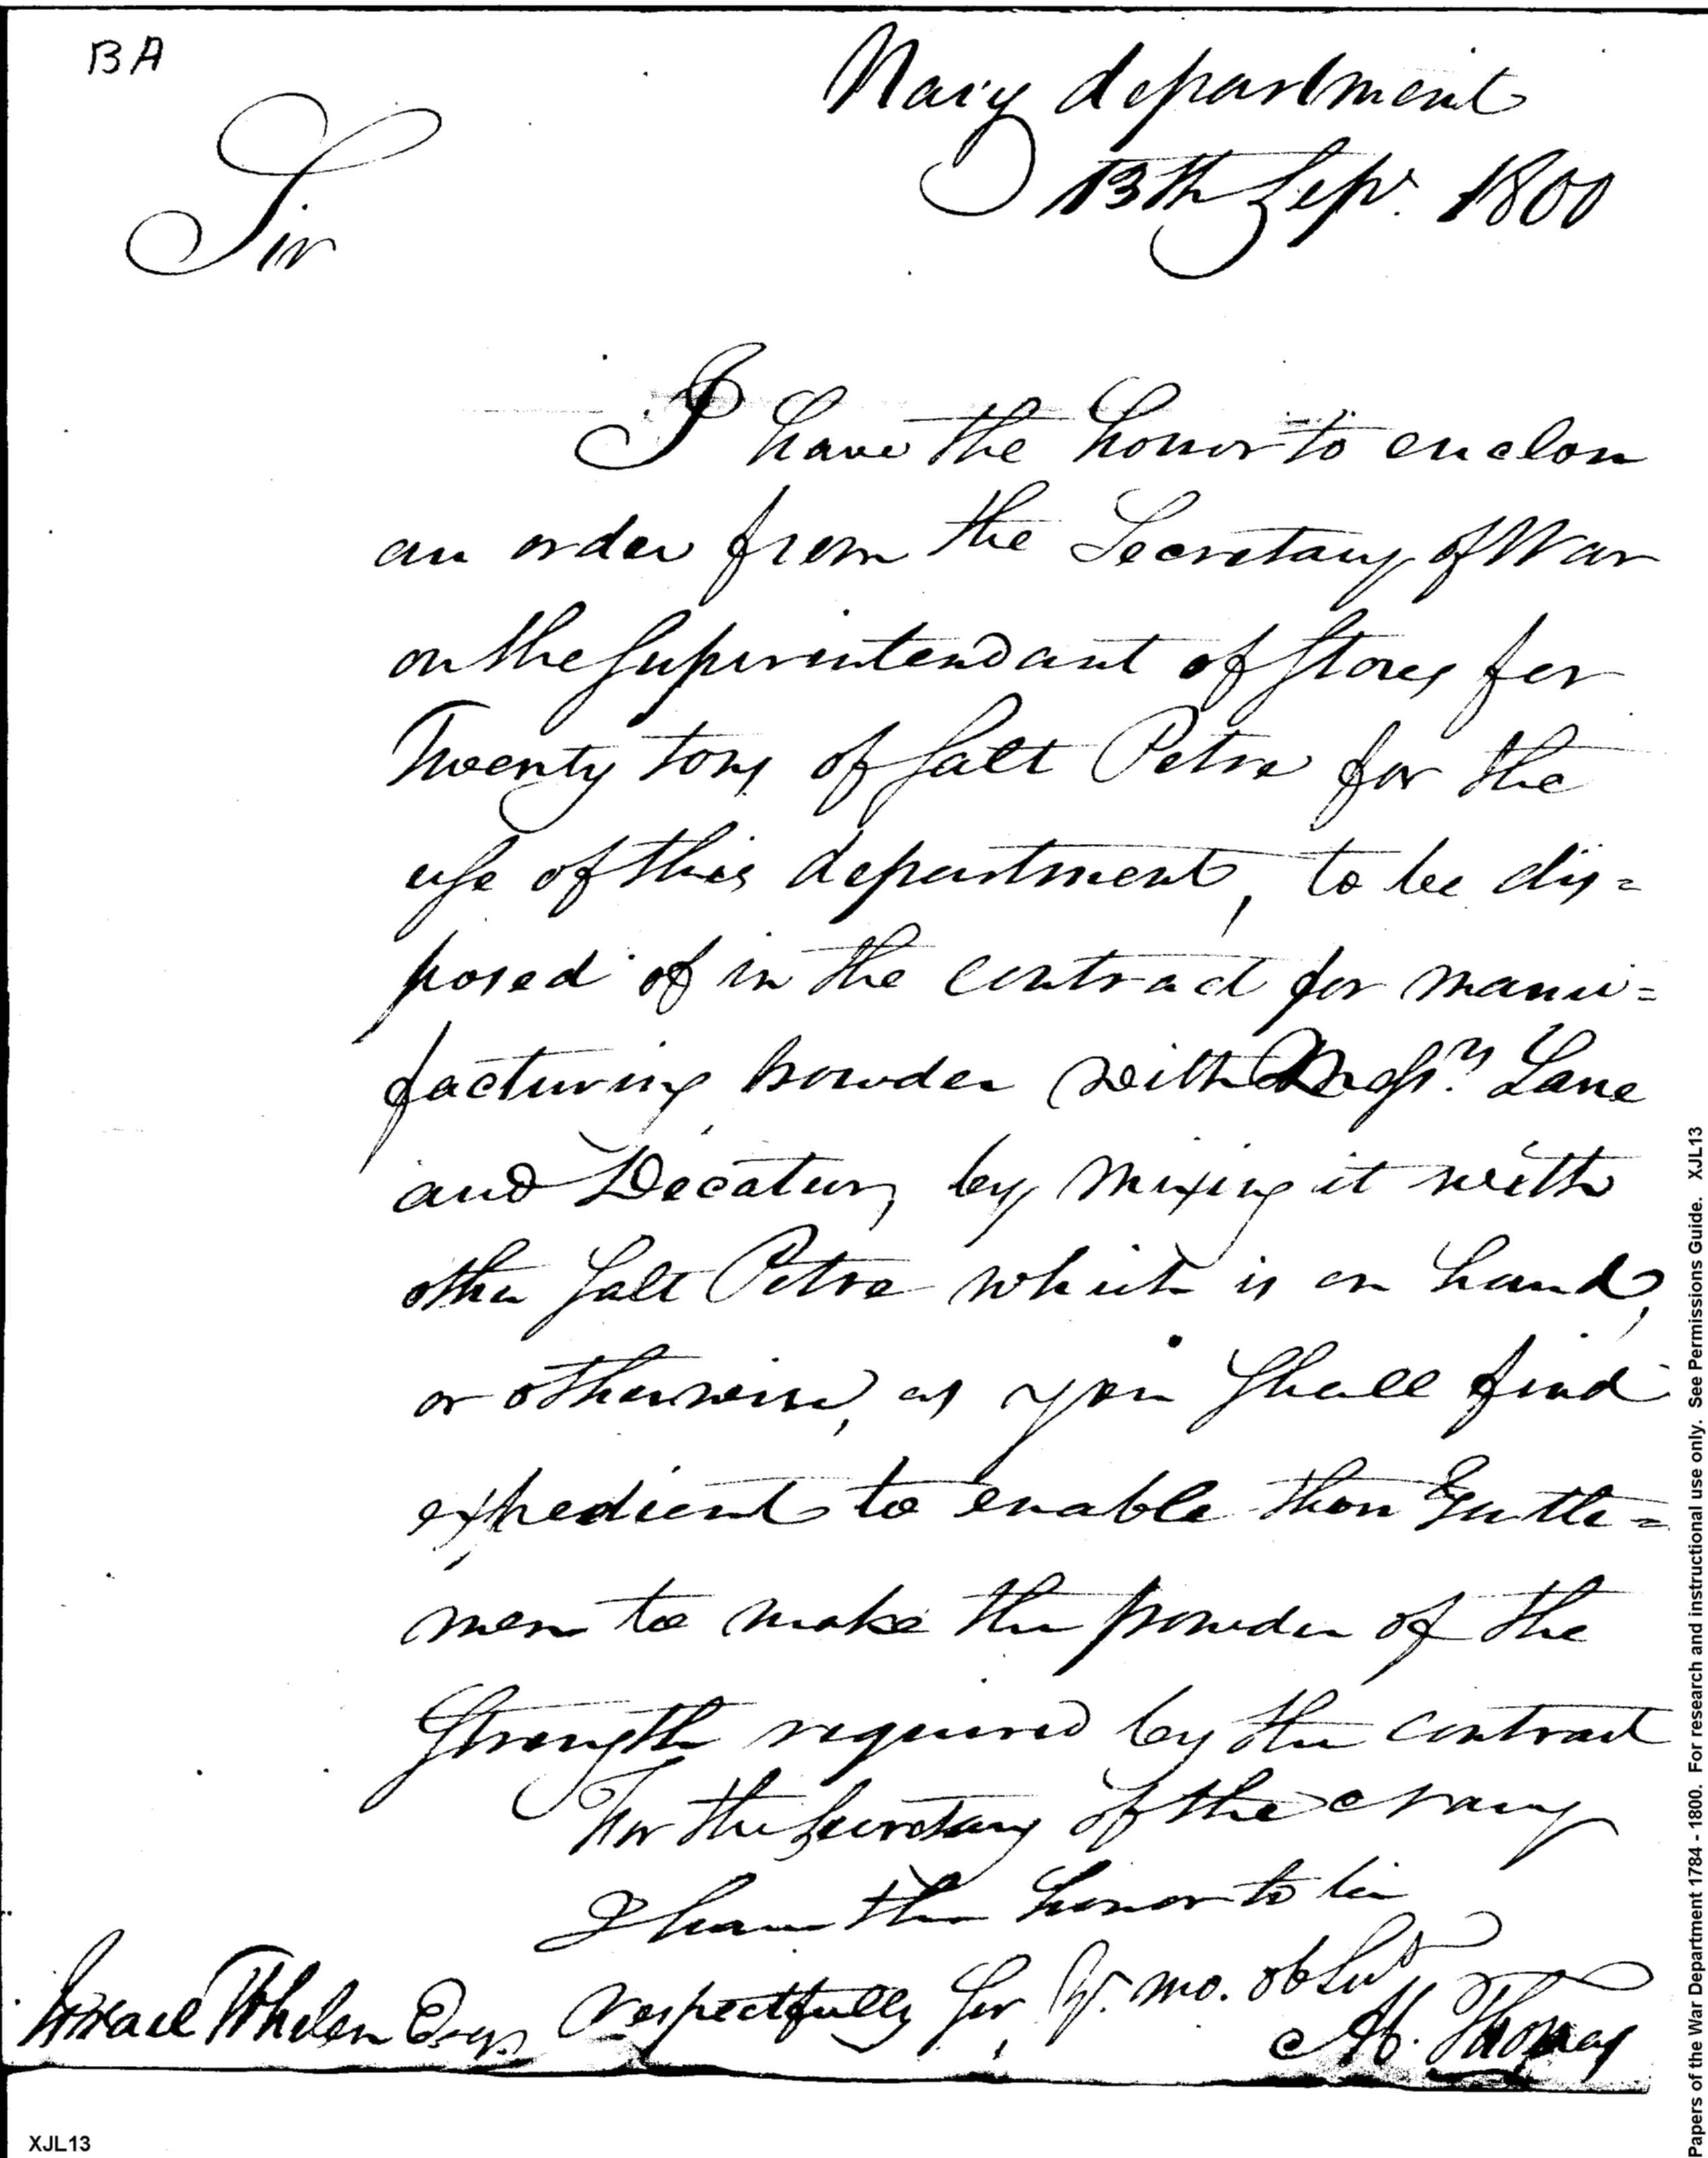 BA
Navy department
13th Sepr. 1800
Sir
I have the honor to enclose
an order from the Secretary of War
on the Superintendant of Stores for
Twenty tons of Salt Petre for the
use of this department, to be dis=
posed of in the contract for manu=
facturing powder with Messrs. Lane
and Decatur, by mixing it with
other Salt Petre which is on hand,
or otherwise, as you shall find
expedient to enable those Gentle=
men to make the powder of the
Strength required by the contract
For the Secretary of the Navy
I have the honor to be
respectfully Sir, Yr. mo. ob Servt
Israel Whelen Esqr.
A. Thomas
XJL13
Papers of the War Department 1784 - 1800. For research and instructional use only. See Permissions Guide. XJL13